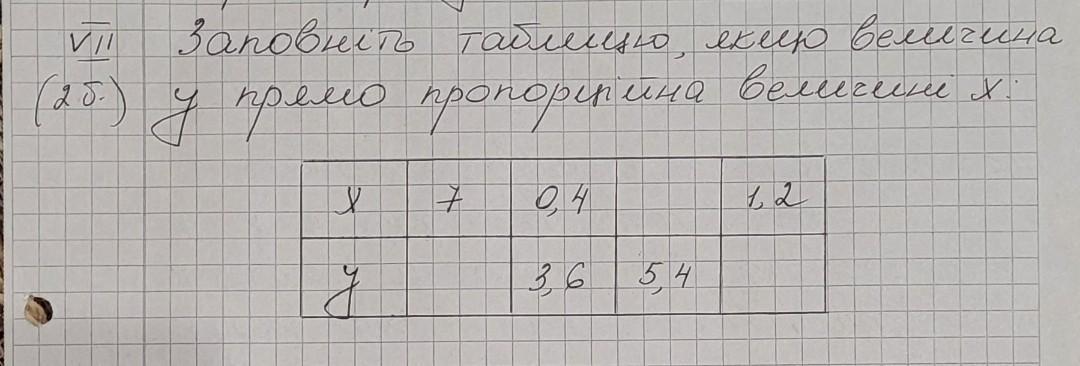 VII Заповніть таблицю, якщо величина
(2 б.) y прямо пропорційна величині x:
x 7 0,4 1,2
y 3,6 5,4